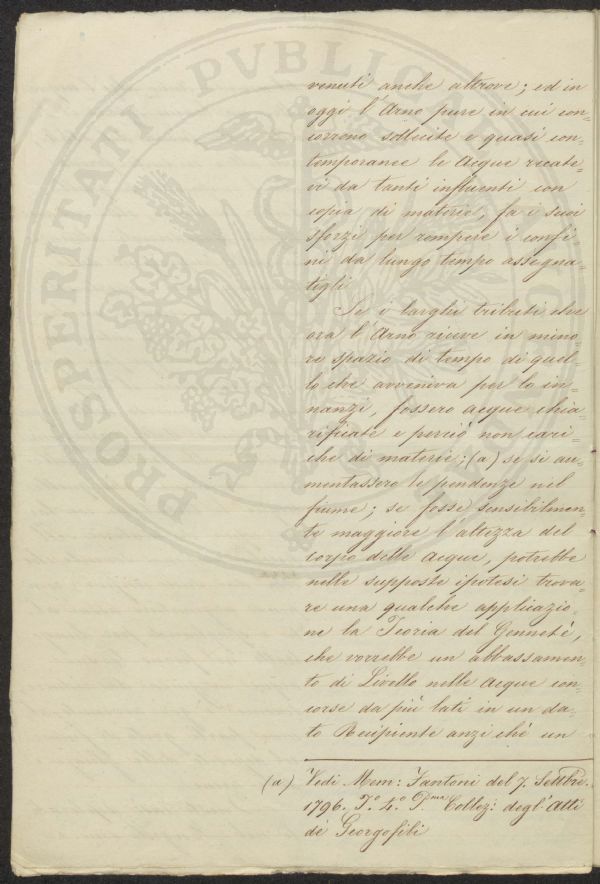 PROSPERITATI PVBLICAE
venuti anche altrove; ed in
oggi l'Arno pure in cui con=
corrono sollecite e quasi con=
temporanee le Acque recate=
vi da tanti influenti con
copia di materie, fa i suoi
sforzi per rompere i confi=
ni da lungo tempo assegna=
tigli
Se i larghi tributi che
ora l'Arno riceve in mino=
re spazio di tempo di quel=
lo che avveniva per lo in=
nanzi, fossero acque chia=
rificate e perciò non cari=
che di materie; (a) se si au=
mentassero le pendenze nel
fiume; se fosse sensibilmen=
te maggiore l'altezza del
corpo delle Acque, potrebbe
nelle supposte ipotesi trova=
re una qualche applicazio=
ne la Teoria del Genneté,
che vorrebbe un abbassamen=
to di Livello nelle Acque con=
corse da più lati in un da=
to Recipiente anzi chè un
(a) Vedi Mem: Fantoni del 7. Settbre.
1796. To. 4.o Pma Collez: degl'Atti
de' Georgofili